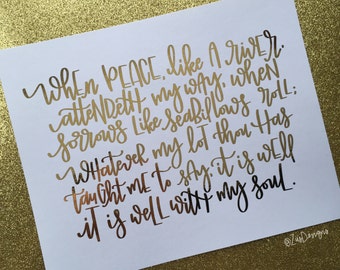 When PEACE, like A RiveR,
attenDeth my way, when
sorrows like seabillows roll;
Whatever my lot thou has
taught me to say, it is well
it is well with my soul.